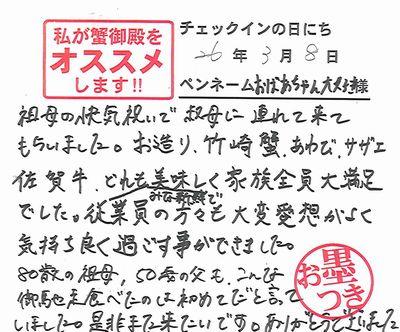 私が蟹御殿を
オススメ
します!!
チェックインの日にち
26年3月8日
ペンネームおばあちゃん大好き様
祖母の快気祝いで叔母に連れて来て
もらいました。お造り、竹崎蟹、あわび、サザエ
佐賀牛、どれも美味しく家族全員大満足
みな新鮮で
でした。従業員の方々も大変愛想がよく
気持ち良く過ごす事ができました。
80歳の祖母、50歳の父も、こんな
御馳走食べたのは初めてだと言って
いました。是非また来たいです。ありがとうございました
墨
おつき